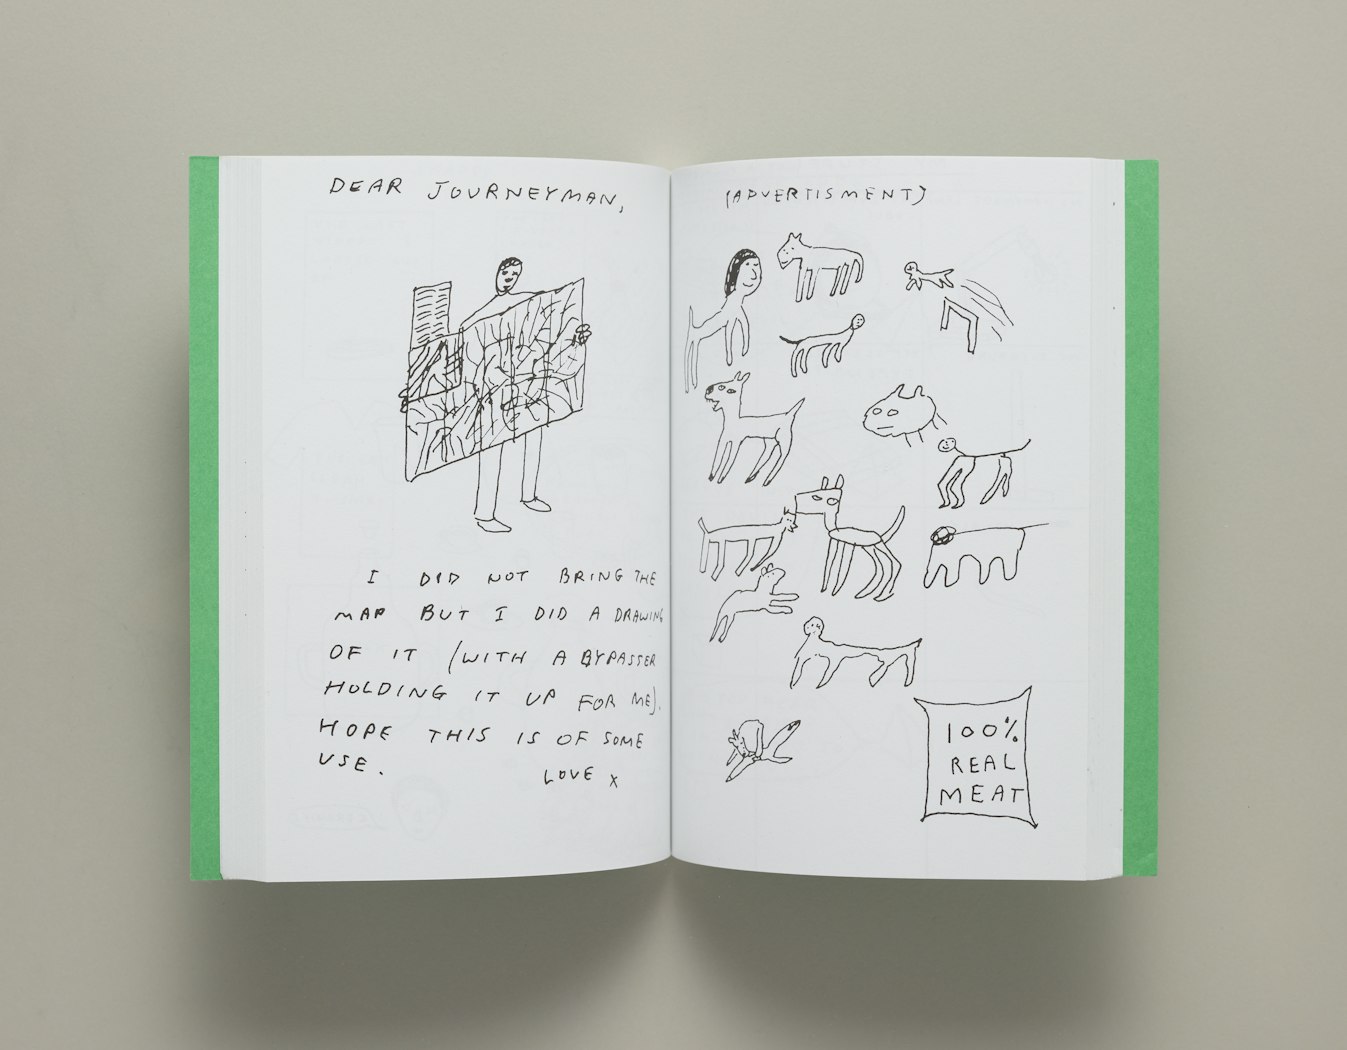 DEAR JOURNEYMAN,
I DID NOT BRING THE
MAP BUT I DID A DRAWING
OF IT (WITH A BYPASSER
HOLDING IT UP FOR ME).
HOPE THIS IS OF SOME
USE.
LOVE X
(ADVERTISMENT)
100%
REAL
MEAT